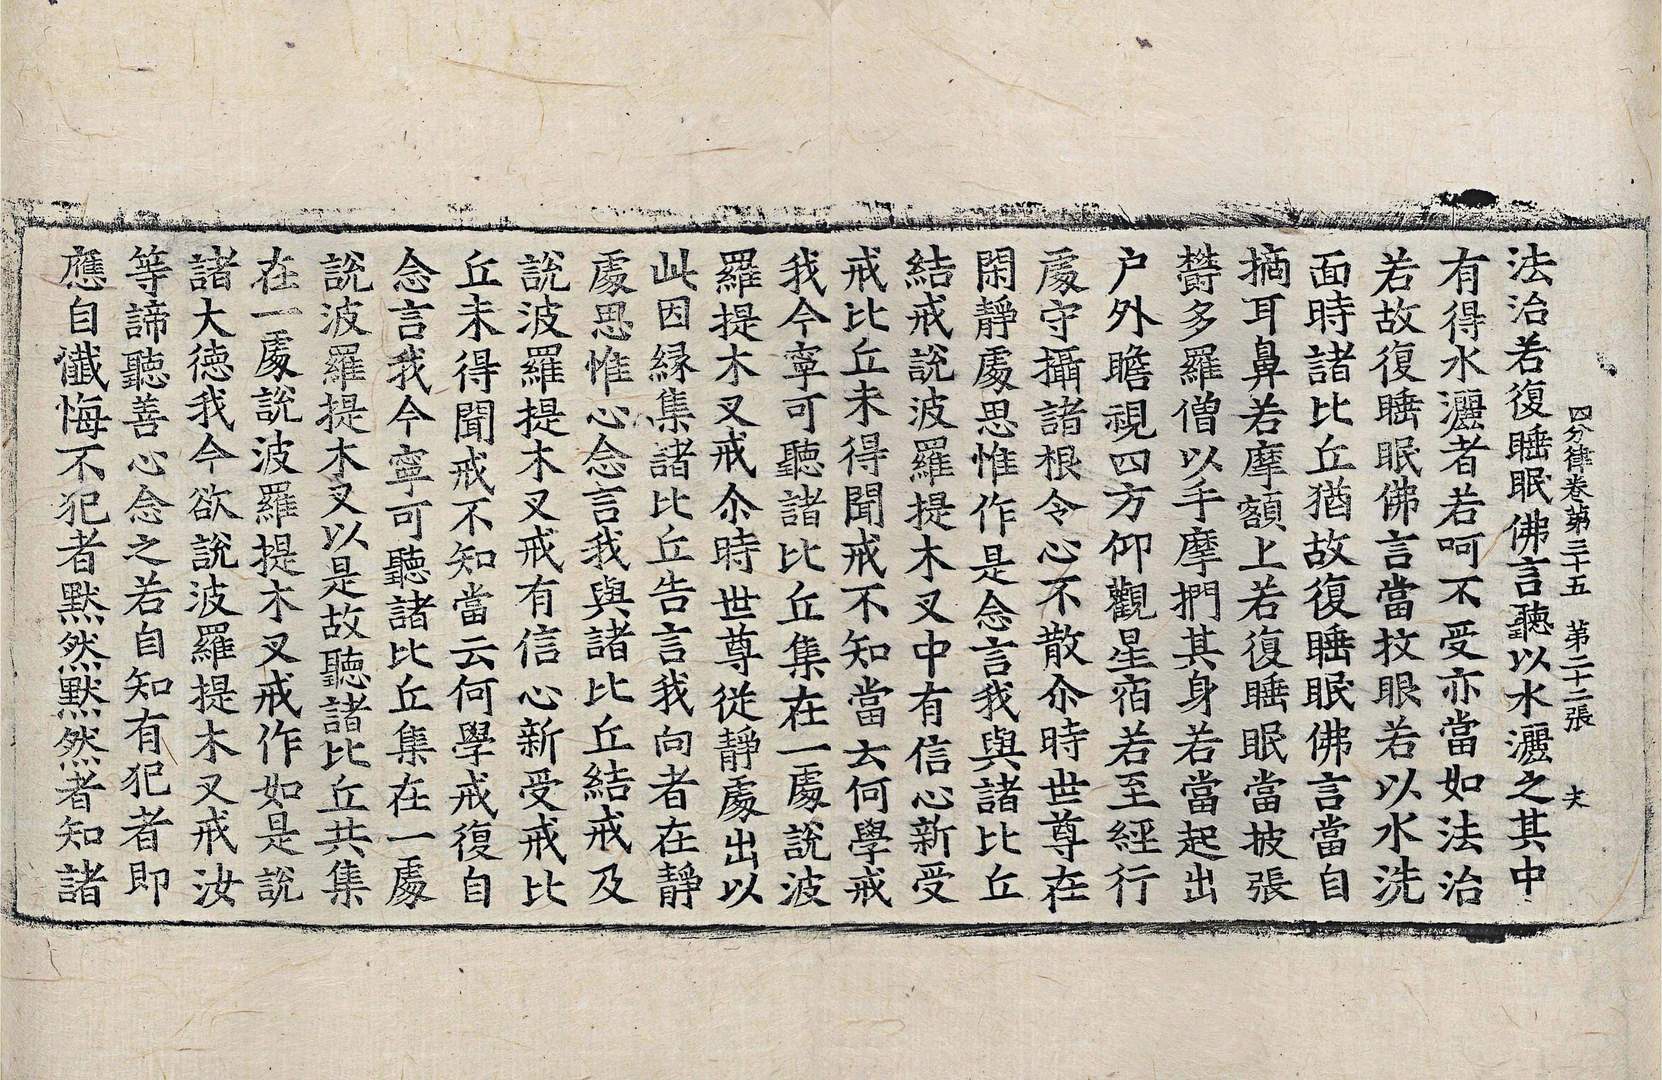 四分律卷第三十五　第二十二張　大
法治若復睡眠佛言聽以水灑之其中
有得水灑者若呵不受亦當如法治
若故復睡眠佛言當抆眼若以水洗
面時諸比丘猶故復睡眠佛言當自
摘耳鼻若摩額上若復睡眠當披張
欝多羅僧以手摩捫其身若當起出
户外瞻視四方仰觀星宿若至經行
處守攝諸根令心不散尒時世尊在
閑靜處思惟作是念言我與諸比丘
結戒說波羅提木叉中有信心新受
戒比丘未得聞戒不知當云何學戒
我今寧可聽諸比丘集在一處說波
羅提木叉戒尒時世尊從靜處出以
此因緣集諸比丘告言我向者在靜
處思惟心念言我與諸比丘結戒及
說波羅提木叉戒有信心新受戒比
丘未得聞戒不知當云何學戒復自
念言我今寧可聽諸比丘集在一處
說波羅提木叉以是故聽諸比丘共集
在一處說波羅提木叉戒作如是說
諸大德我今欲說波羅提木叉戒汝
等諦聽善心念之若自知有犯者即
應自懺悔不犯者默然默然者知諸